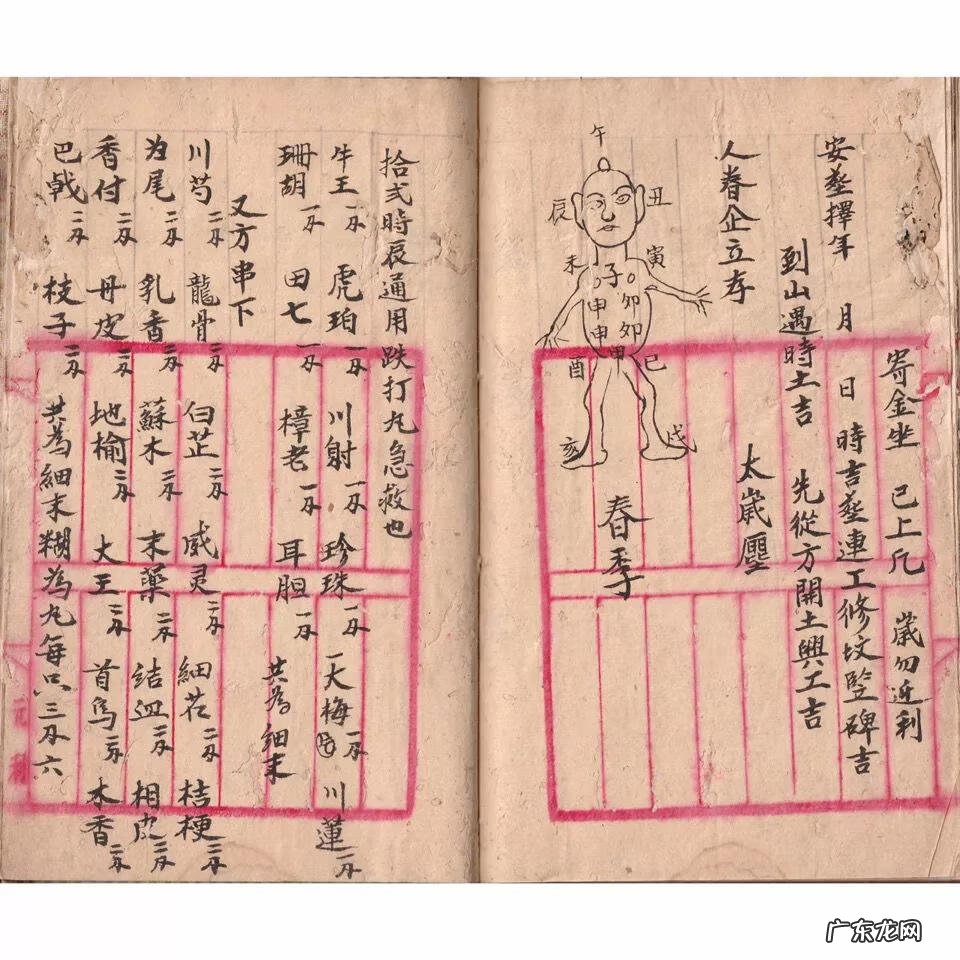 寄金坐　已上凡　歲勿近利
安塟擇年　月　日　時吉塟連工修坟竪碑吉
到山遇時土吉　先從方開土興工吉
太歲壓
人眷企立存
春季
午
丑
辰
寅
未
子
卯
卯
申
申
甲
酉
巳
亥
戌
拾弍時辰通用跌打丸急救也
牛王一分　虎珀一分　川射一分　珍珠一分　天梅片一分　川蓮一分
珊胡一分　田七一分　樟老一分　耳胆一分　共為細末
又方串下
川芎二分　龍骨二分　白芷二分　威灵二分　細茋二分　桔梗二分
为尾二分　乳香二分　蘇木二分　末藥二分　結血二分　相皮二分
香付二分　丹皮二分　地榆二分　大王二分　首烏二分　木香二分
巴戟二分　枝子二分　共為細末糊為丸每只三分六
广东龙网